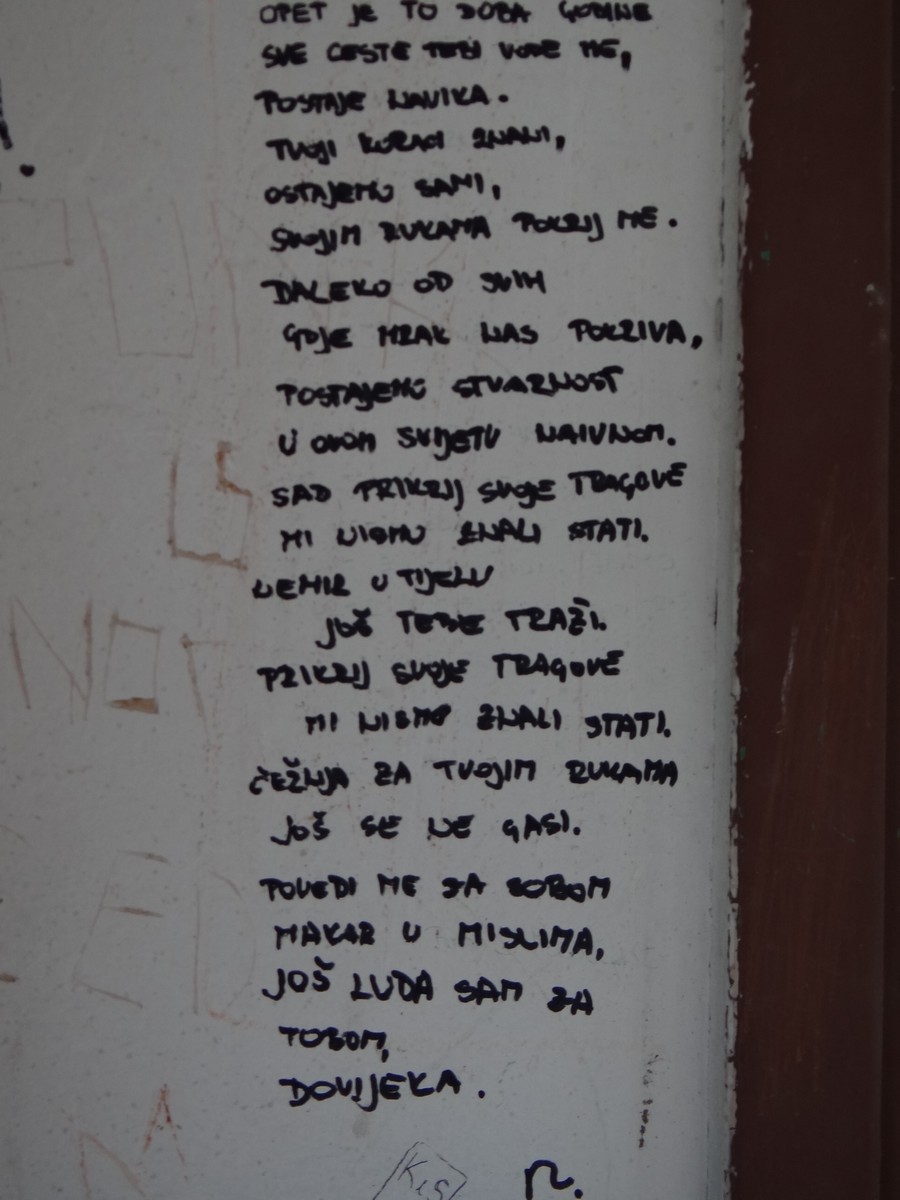 OPET JE TO DOBA GODINE
SVE CESTE TEBI VODE ME,
POSTAJE NAVIKA.
TVOJI KORACI ZNANI,
OSTAJEMO SAMI,
SVOJIM RUKAMA POKRIJ ME.
DALEKO OD SVIH
GDJE MRAK NAS POKRIVA,
POSTAJEMO STVARNOST
U OVOM SVIJETU NAIVNOM.
SAD PRIKRIJ SVOJE TRAGOVE
MI NISMO ZNALI STATI.
NEMIR U TIJELU
JOŠ TEBE TRAŽI.
PRIKRIJ SVOJE TRAGOVE
MI NISMO ZNALI STATI.
ČEŽNJA ZA TVOJIM RUKAMA
JOŠ SE NE GASI.
POVEDI ME SA SOBOM
MAKAR U MISLIMA,
JOŠ LUDA SAM ZA
TOBOM,
DOVIJEKA.
NOT